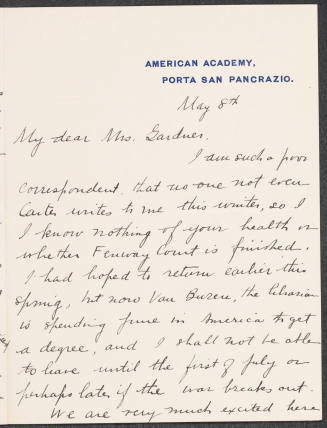 AMERICAN ACADEMY,
PORTA SAN PANCRAZIO.
May 8th
My dear Mrs. Gardner.
I am such a poor
correspondent, that no one not even
Carter writes to me this winter, so I
I know nothing of your health or
whether Fenway Court is finished.
I had hoped to return earlier this
spring, but now Van Buren, the librarian
is spending June in America to get
a degree, and I shall not be able
to leave until the first of July or
perhaps later if the war breaks out.
We are very much excited here